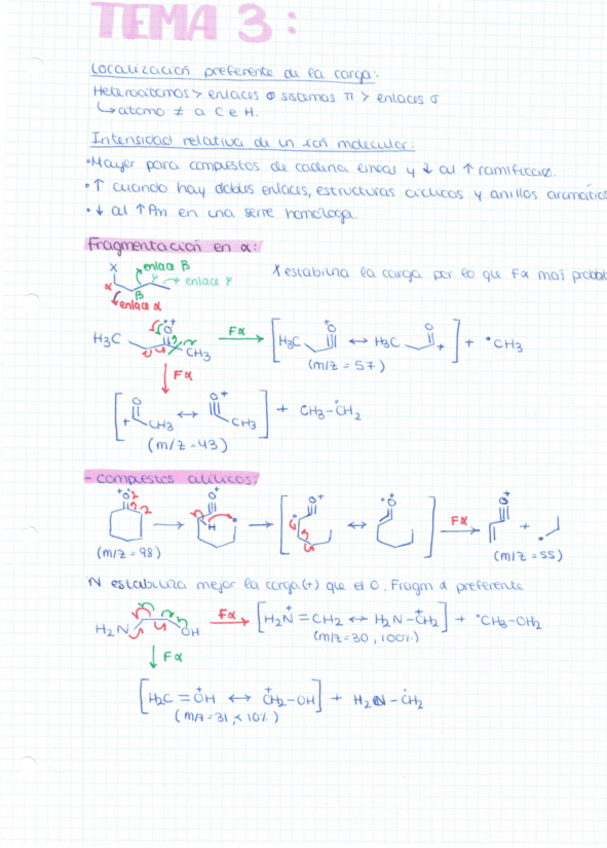 TEMA 3:
Localización preferente de la carga:
Heteroátomos > enlaces σ sistemas π > enlaces σ
↳ átomo ≠ a C e H.
Intensidad relativa de un ión molecular:
• Mayor para compuestos de cadena lineal y ↓ al ↑ ramificació.
• ↑ cuando hay dobles enlaces, estructuras cíclicas y anillos aromáticos
• ↓ al ↑ Pm en una serie homóloga.
Fragmentación en α:
X enlace β
γ → enlace γ X estabiliza la carga por lo que Fα más probabl
α β
enlace α
H3C O CH3 Fα [H3C O+ ↔ H3C O +] + •CH3
(m/z = 57)
Fα
[+ O CH3 ↔ O+ CH3] + CH3-ĊH2
(m/z = 43)
- compuestos cíclicos:
+O O+ H [O+ ↔ •O] Fα O+ + •
(m/z = 98) (m/z = 55)
N estabiliza mejor la carga (+) que el O. Fragm α preferente
H2N OH Fα [H2N+=CH2 ↔ H2N-CH2+] + •CH2-OH2
(m/z = 30, 100%)
Fα
[H2C=OH+ ↔ +CH2-OH] + H2N-ĊH2
(m/z = 31, < 10%)